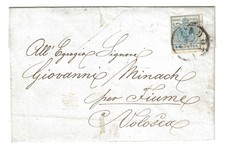 All' Egregio Signore
Giovanni Minach
per Fiume
Volosca